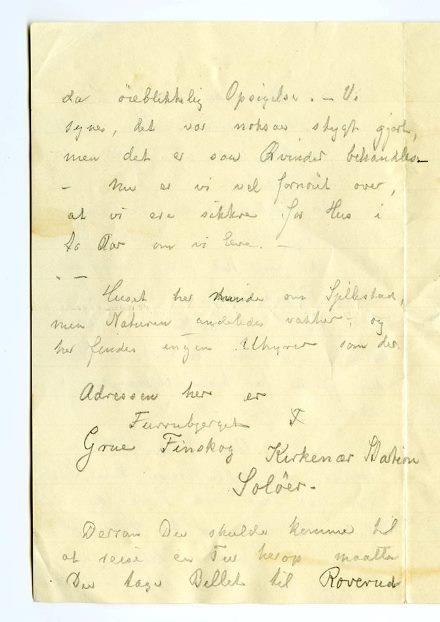 da öieblikkelig Opsigelse. – Vi
synes, det var noksaa stygt gjort,
men det er saa Qvinder behandles –
– Nu er vi vel fornöit over,
at vi ere sikkre for Hus i
to Aar om vi leve. –
Huset her minder om Spillestad,
men Naturen anderledes vakker; og
her findes ingen Uhyrer som der
Adressen her er
Furruberget
Grue Finskog Kirkenær Station
Solöer.
Dersom De skulde komme til
at reise en Tur herop maatte
De tage Billet til Roverud